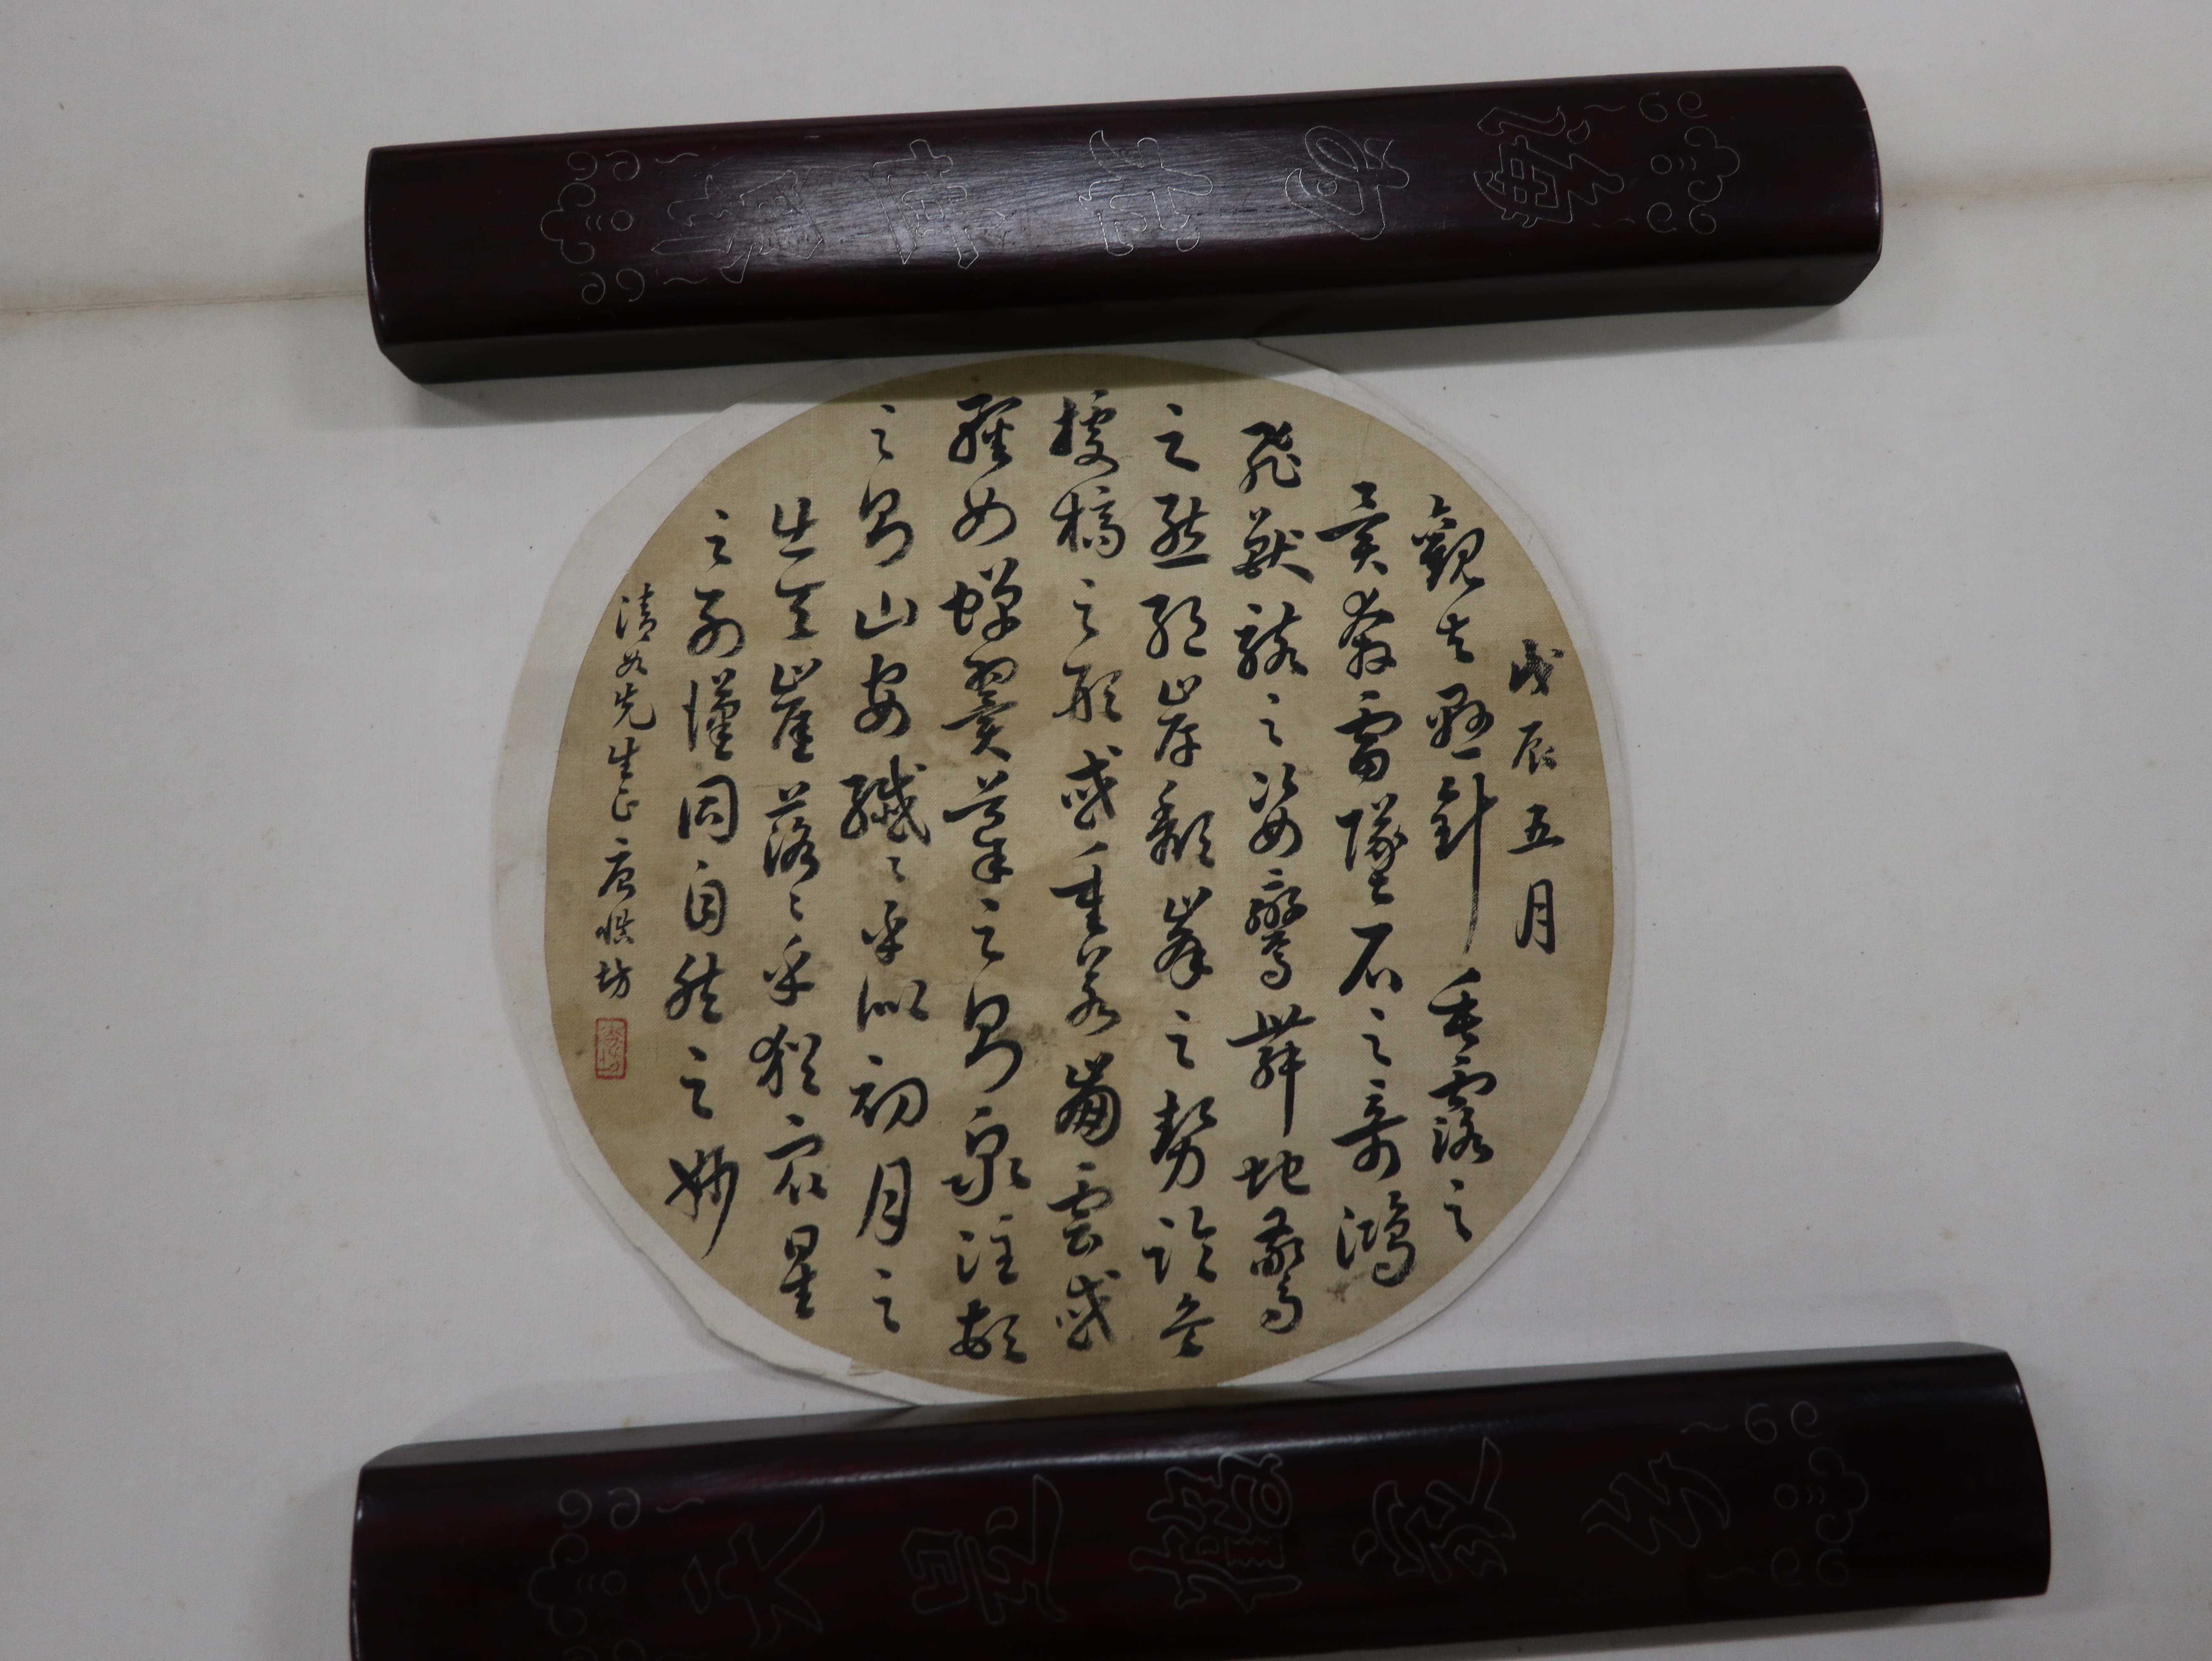 戊辰五月
觀夫懸針垂露之
異奔雷墜石之奇鴻
飛獸駭之姿鸞舞蛇驚
之態絕岸頹峯之勢臨危
據槁之形或重若崩雲或
輕如蟬翼導之則泉注頓
之則山安纖〻乎似初月之
出天崖落〻乎猶衆星
之列漢同自然之妙
清如先生正唐慎坊